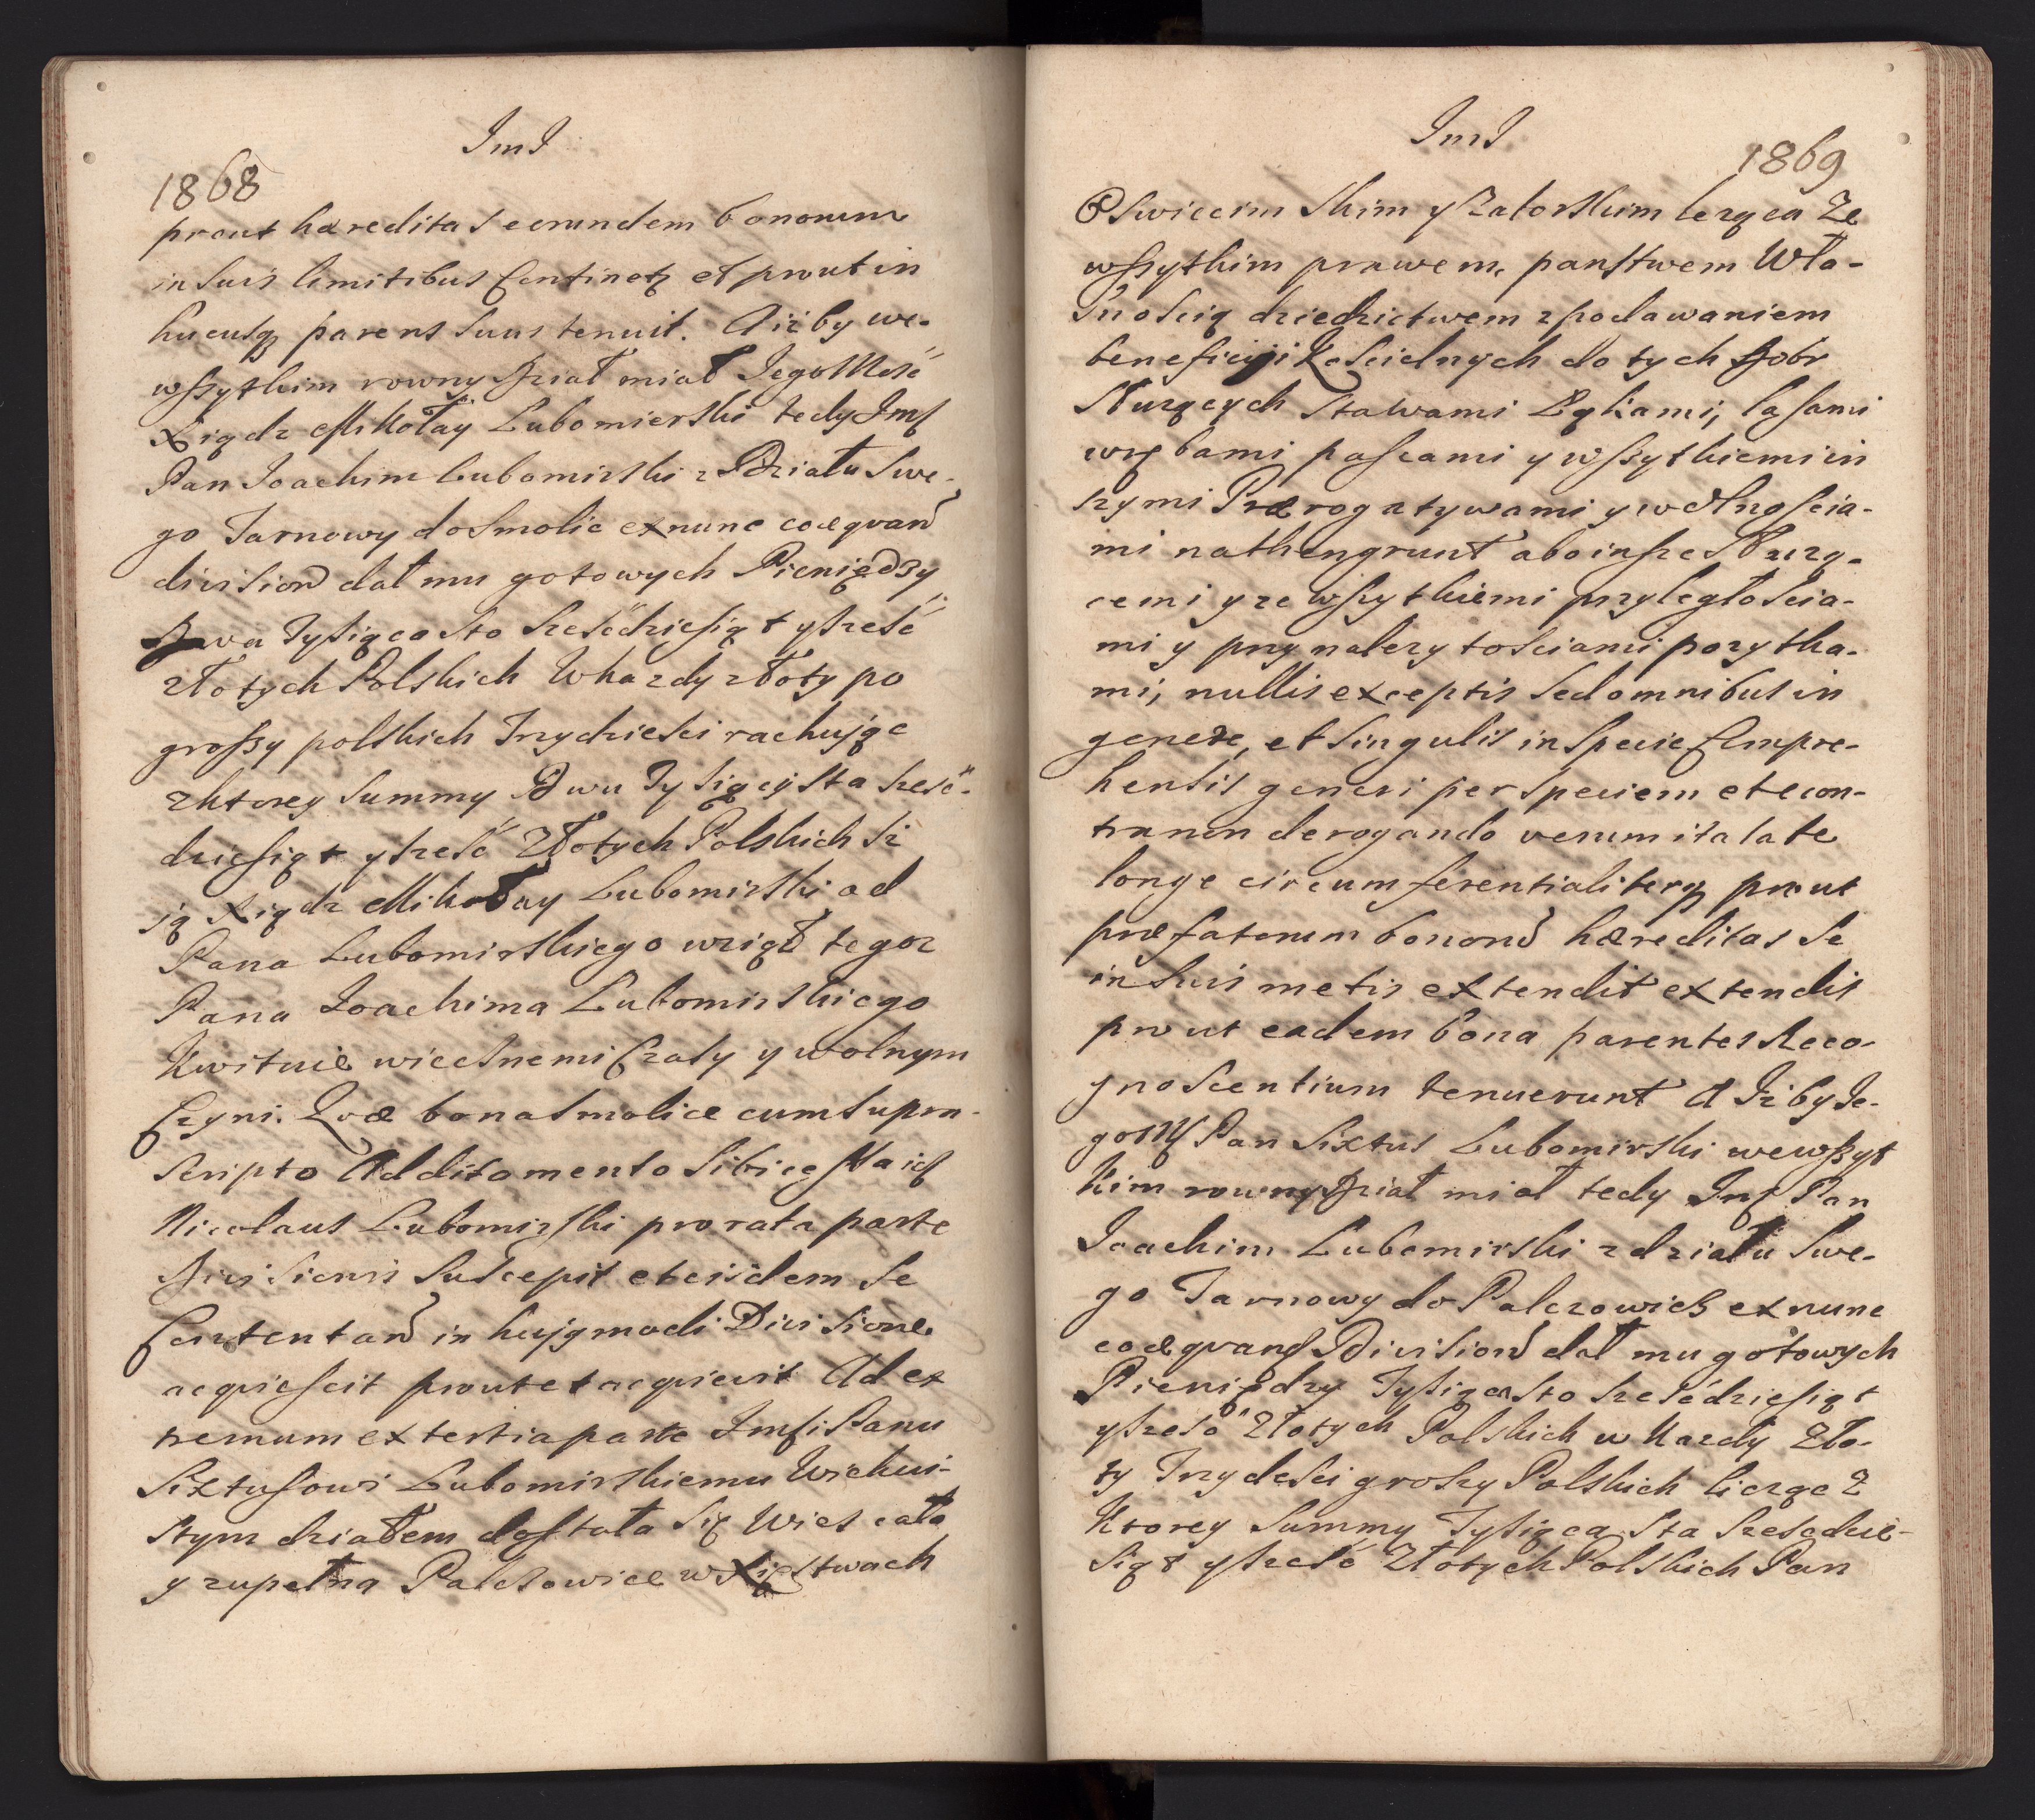 ImI
1868
prout hæreditas eorundem bonorum
in suis limitibus Continetz et prout in
hucusqz parens suus tenuit. A iż by we-
wszytkim rowny Dział miał Jego Msć
Xiądz Mikołay Lubomierski tedy Jmſ
Pan Joachim Lubomirski z Działu Swe-
go Tarnowy do Smolic ex nunc coæqvand
division dał mu gotowych Pieniędzy
Dwa Tysiąca Sto Sześćdziesiąt y sześć
złotych Polskich W kazdy złoty po
groszy polskich Trzydzieści rachując
z ktorey Summy Dwu Tysiący Sta sześć-
dziesiąt y sześć Złotych Polskich Iż
ią Xiądz Mikołay Lubomirski od
Pana Lubomirskiego wziął tegoz
Pana Joachima Lubomirskiego
Kwituie wiecsnemi Czasy y wolnym
Czyni. Qvæ bona Smolice cum supra-
scripto Additamento sibi
Nicolaus Lubomirski pro rata parte
Divisionis suscepit et eisdem se
Contentand in hujqmodi Divisione
acqviescit prout et acqvievit Ad ex
tremum ex tertia parte Jmſi Panu
Sixtusowi Lubomirskiemu Wiekui-
stym działem dostała się Wies cała
y zupełna Palczowice w Xięstwach
ImI
1869
Oswiecim skim y Zatorskim leząca Ze
wszytkim prawem, panstwem Wła-
snoscią dziedzictwem z podawaniem
beneficiji Koscielnych do tych Dobr
Słuzących Stawami Łąkami, lasami
wrębami pascami y wszytkiemi in
szymi Prærogatywami y wolnościa-
mi na then grunt abo insze Słuzą-
cemi y ze wszytkiemi przyległościa-
mi y przynalezytościami pozytka-
mi, nullis exceptis sed omnibus in
genere, et singulis in specie Compre-
hensis generi per speciem et econ-
trarion derogando verum ita late
longe circumferentialiterqz prout
præfatorum bonond hæreditas se
in suis metis extendit extendit
prout eadem bona parentes Reco-
gnoscentium tenuerunt A Iż by Je-
gomſ Pan Sixtus Lubomirski we wszyt
kim rowny Dział miał tedy Jmſ Pan
Joachim Lubomirski z działu Swe-
go Tarnowy do Palczowics ex nunc
coæqvand Division dał mu gotowych
Pieniędzy Tysiąca Sto Sześćdziesiąt
y sześć Złotych Polskich w Kazdy Zło-
ty Trzydesci groszy Polskich licząc Z
Ktorey Summy Tysiąca Sta Sześcdzie-
siąt y sześć Złotych Polskich Pan